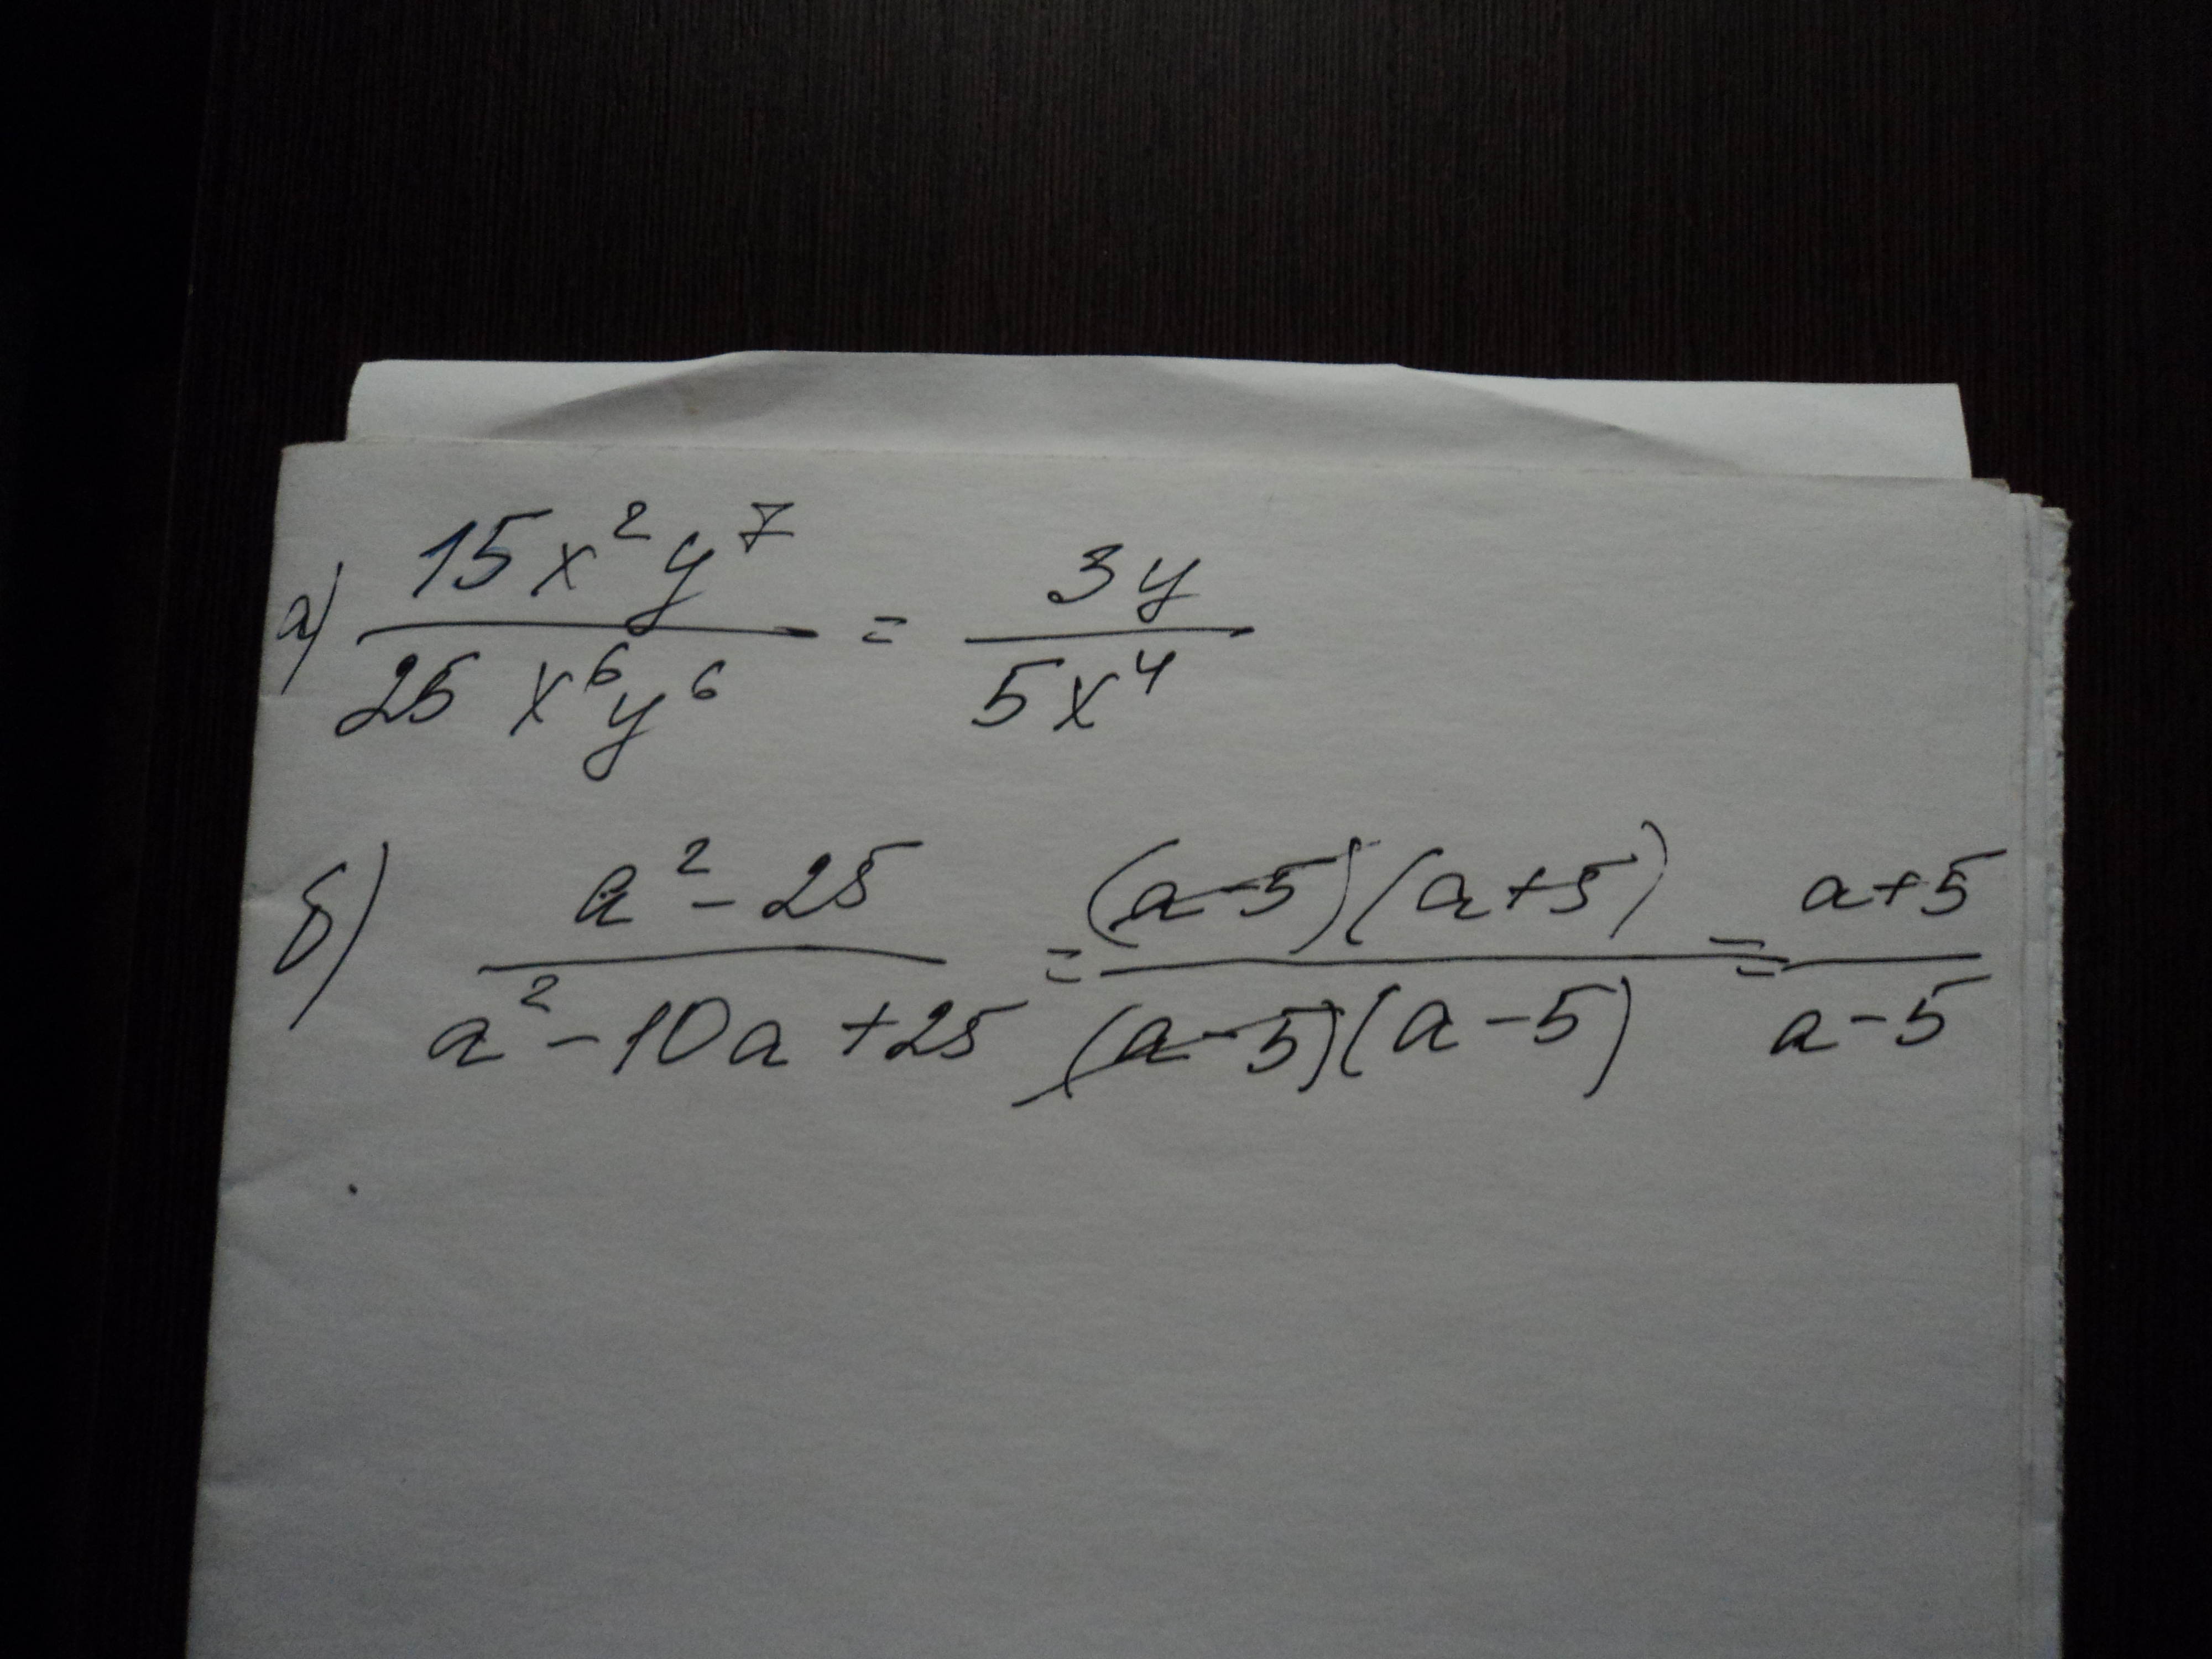 а) 15x²y⁷ / 25x⁶y⁶ = 3y / 5x⁴
б) a² - 25 / a² - 10a + 25 = (a-5)(a+5) / (a-5)(a-5) = a+5 / a-5